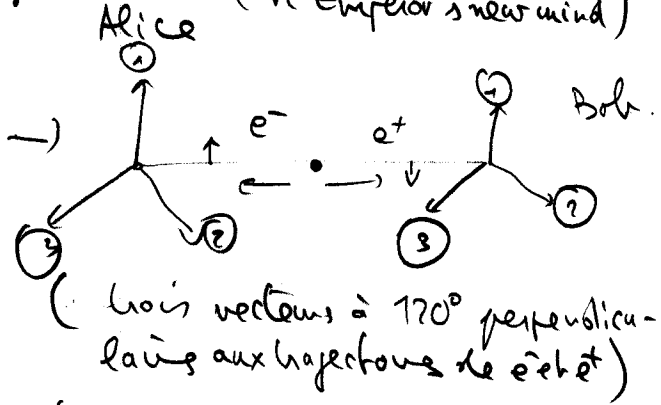 Emperor's new mind)
Alice
1
1
Bob.
e⁻
e⁺
3
2
3
2
( trois vecteurs à 120° perpendicu-
laires aux trajectoires de e⁻ et e⁺)